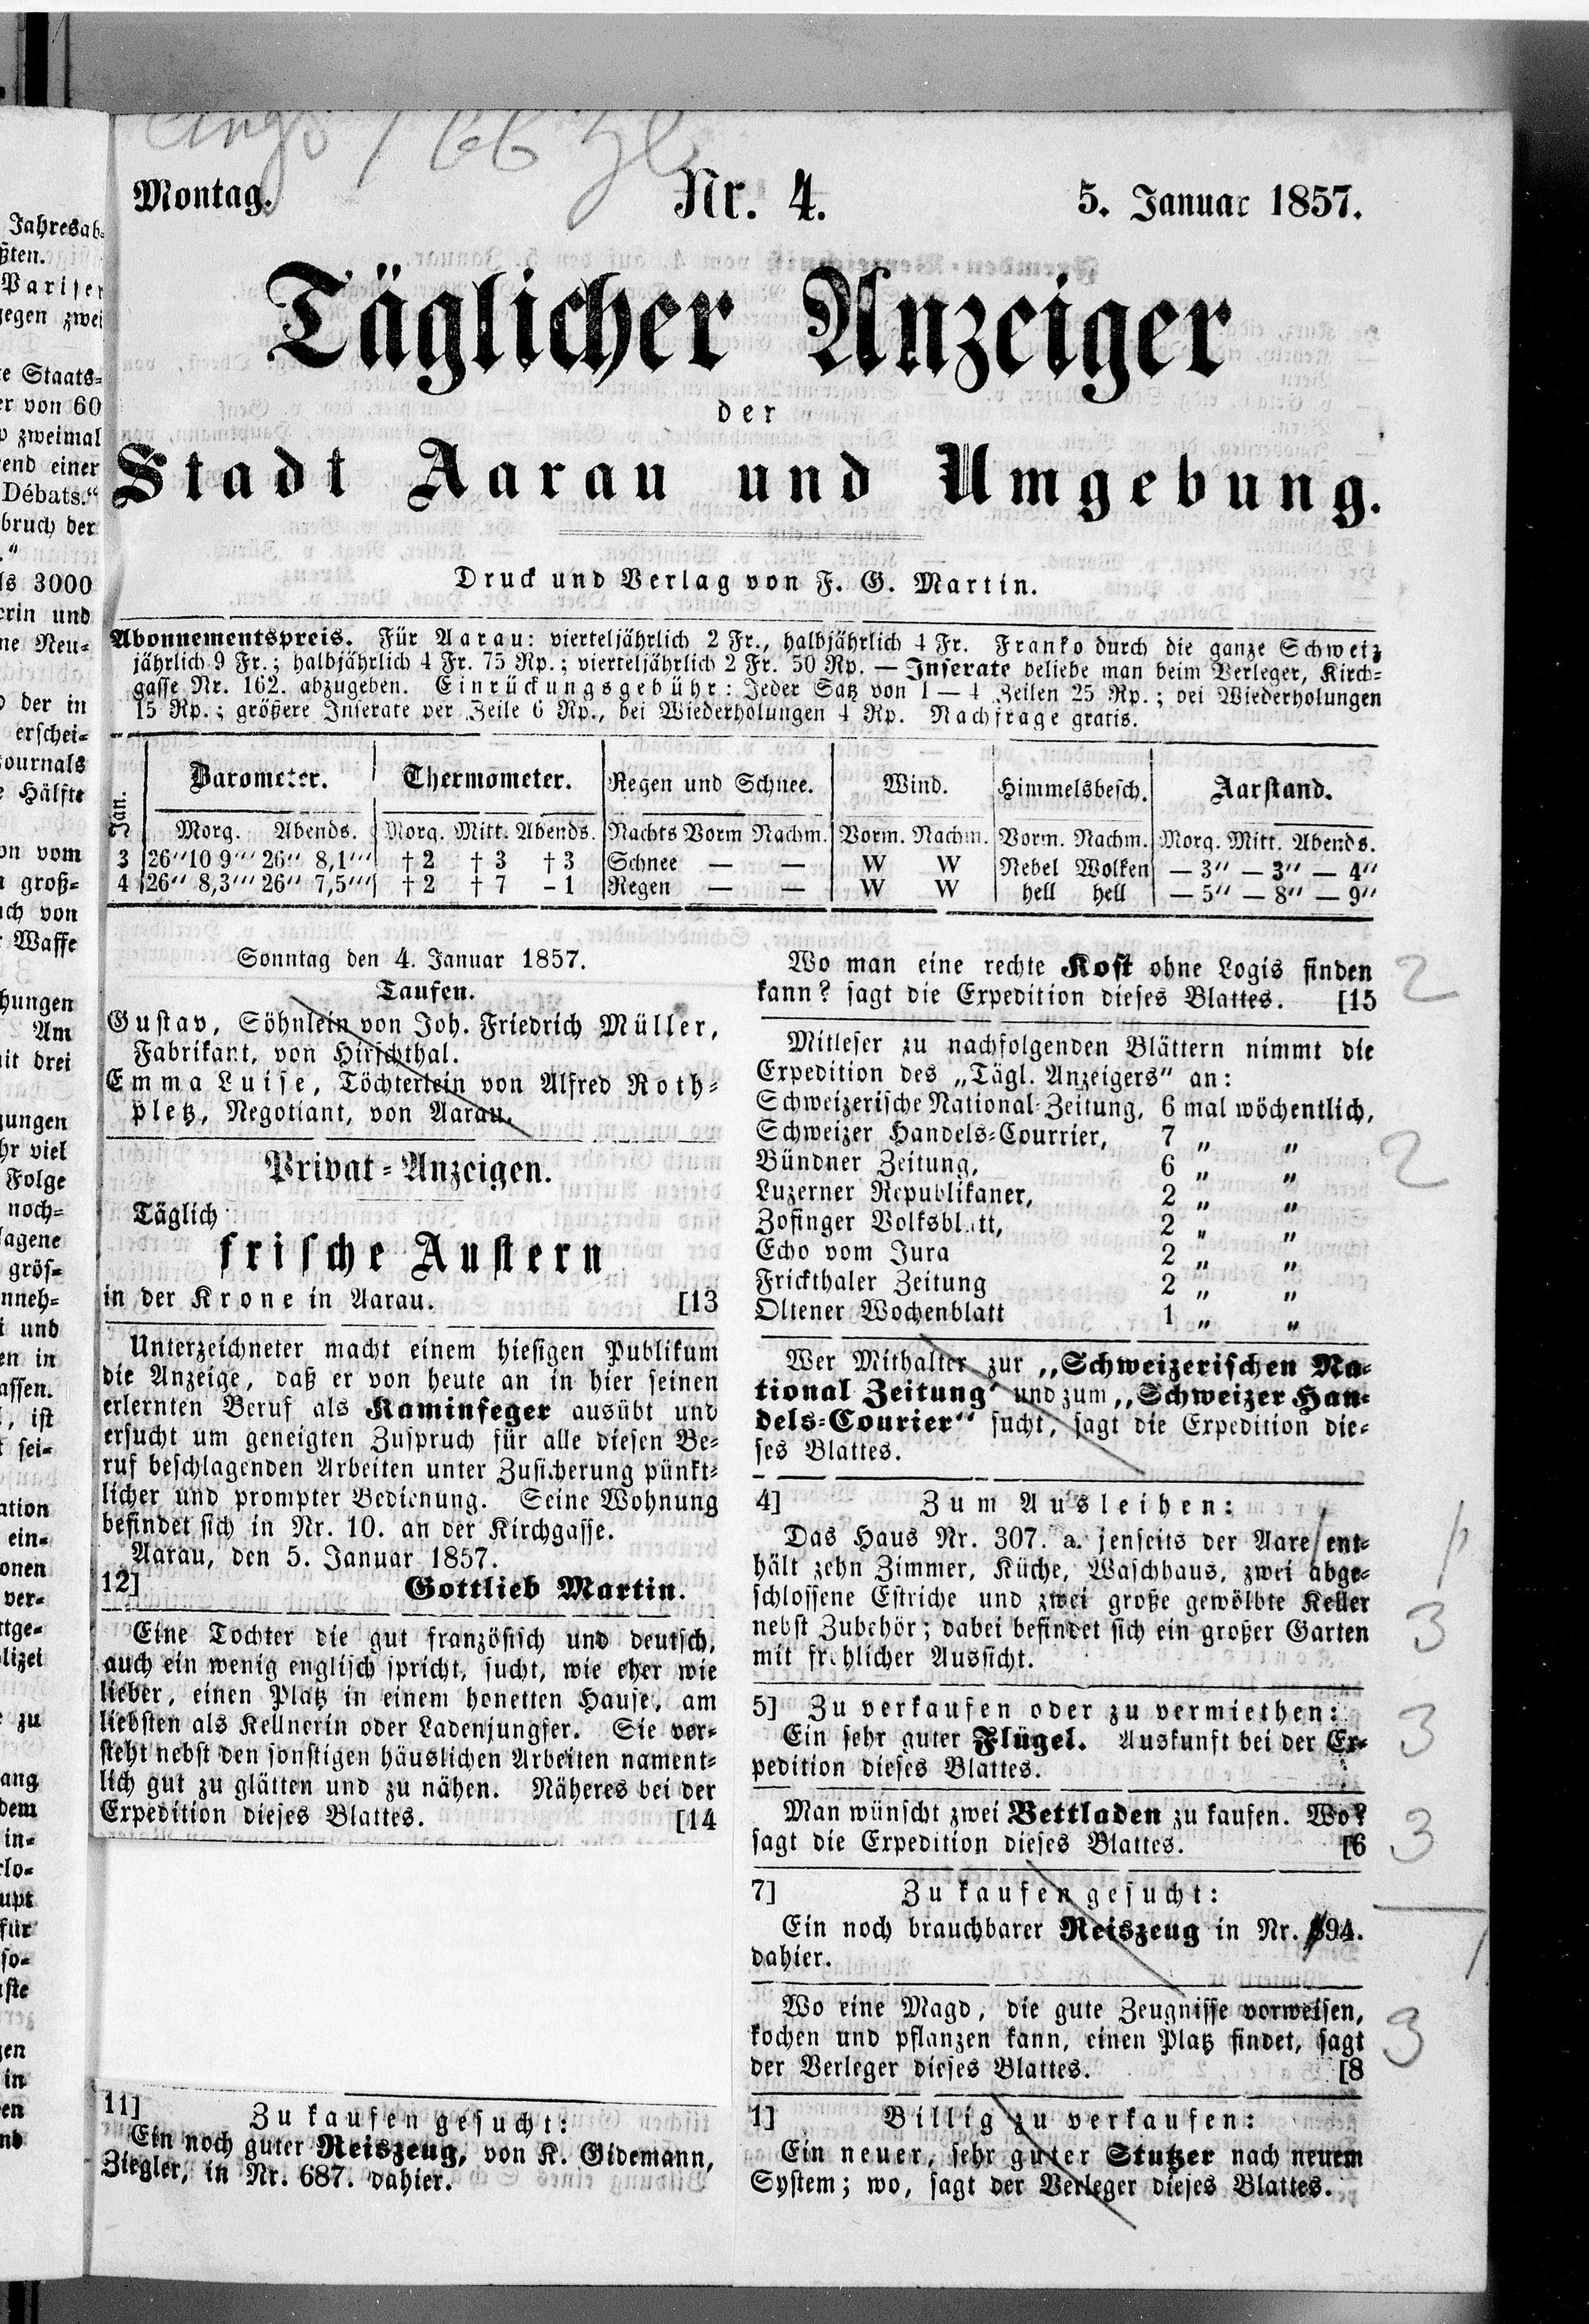 Jahresab-
ßten.
Pariser
gegen zwei
te Staats-
er von 60
zweimal
end einer
Débats.“
bruch der
ls 3000
und
ne Neu-
der in
erschei-
ournals
Hälfte
vom
groß-
von
Waffe
Am
it drei
viel
Folge
noch-
lagene
grös-
und
in
ist
sei-
ein-
ver-
zu
dem
in-
für
so-
in
Montag.
Nr. 4.
5. Januar 1857.
Täglicher Anzeiger
der
Stadt Aarau und Umgebung.
Druck und Verlag von F. G. Martin.
Abonnementspreis. Für Aarau: vierteljährlich 2 Fr., halbjährlich 4 Fr. Franko durch die ganze Schweiz
jährlich 9 Fr.; halbjährlich 4 Fr. 75 Rp.; vierteljährlich 2 Fr. 50 Rp. — Inserate beliebe man beim Verleger, Kirch-
gasse Nr. 162. abzugeben. Einrückungsgebühr: Jeder Satz von 1 — 4 Zeilen 25 Rp.; bei Wiederholungen
15 Rp.; größere Inserate per Zeile 6 Rp., bei Wiederholungen 4 Rp. Nachfrage gratis.
Jan. Barometer. Thermometer. Regen und Schnee. Wind. Himmelsbesch. Aarstand.
Morg. Abends. Morg. Mitt. Abends. Nachts Vorm Nachm. Vorm. Nachm. Vorm. Nachm. Morg. Mitt. Abends.
3 26″10 9‴ 26″ 8,1‴ † 2 † 3 † 3 Schnee — — W W Nebel Wolken — 3″ — 3″ — 4″
4 26″ 8,3‴ 26″ 7,5‴ † 2 † 7 - 1 Regen — — W W hell hell — 5″ — 8″ — 9″
Sonntag den 4. Januar 1857.
Taufen.
Gustav, Söhnlein von Joh. Friedrich Müller,
Fabrikant, von Hirschthal.
Emma Luise, Töchterlein von Alfred Roth-
pletz, Negotiant, von Aarau.
Privat-Anzeigen.
Täglich
frische Austern
in der Krone in Aarau. [13
Unterzeichneter macht einem hiesigen Publikum
die Anzeige, daß er von heute an in hier seinen
erlernten Beruf als Kaminfeger ausübt und
ersucht um geneigten Zuspruch für alle diesen Be-
ruf beschlagenden Arbeiten unter Zusicherung pünkt-
licher und prompter Bedienung. Seine Wohnung
befindet sich in Nr. 10. an der Kirchgasse.
Aarau, den 5. Januar 1857.
12] Gottlieb Martin.
Eine Tochter die gut französisch und deutsch,
auch ein wenig englisch spricht, sucht, wie eher wie
lieber, einen Platz in einem honetten Hause, am
liebsten als Kellnerin oder Ladenjungfer. Sie ver-
steht nebst den sonstigen häuslichen Arbeiten nament-
lich gut zu glätten und zu nähen. Näheres bei der
Expedition dieses Blattes. [14
11] Zu kaufen gesucht:
Ein noch guter Reiszeug, von K. Gidemann,
Ziegler, in Nr. 687. dahier.
Wo man eine rechte Kost ohne Logis finden
kann? sagt die Expedition dieses Blattes. [15
2
Mitleser zu nachfolgenden Blättern nimmt die
Expedition des „Tägl. Anzeigers“ an:
Schweizerische National-Zeitung, 6 mal wöchentlich,
Schweizer Handels-Courrier, 7 „ „
Bündner Zeitung, 6 „ „
Luzerner Republikaner, 2 „ „
Zofinger Volksblatt, 2 „ „
Echo vom Jura 2 „ „
Frickthaler Zeitung 2 „ „
Oltener Wochenblatt 1 „ „
2
Wer Mithalter zur „Schweizerischen Na-
tional Zeitung“ und zum „Schweizer Han-
dels-Courier“ sucht, sagt die Expedition die-
ses Blattes.
4] Zum Ausleihen:
Das Haus Nr. 307. a. jenseits der Aare ent-
hält zehn Zimmer, Küche, Waschhaus, zwei abge-
schlossene Estriche und zwei große gewölbte Keller
nebst Zubehör; dabei befindet sich ein großer Garten
mit fröhlicher Aussicht.
3
5] Zu verkaufen oder zu vermiethen:
Ein sehr guter Flügel. Auskunft bei der Ex-
pedition dieses Blattes.
3
Man wünscht zwei Bettladen zu kaufen. Wo?
sagt die Expedition dieses Blattes. [6
3
7] Zu kaufen gesucht:
Ein noch brauchbarer Reiszeug in Nr. 94.
dahier.
Wo eine Magd, die gute Zeugnisse vorweisen,
kochen und pflanzen kann, einen Platz findet, sagt
der Verleger dieses Blattes. [8
3
1] Billig zu verkaufen:
Ein neuer, sehr guter Stutzer nach neuem
System; wo, sagt der Verleger dieses Blattes.